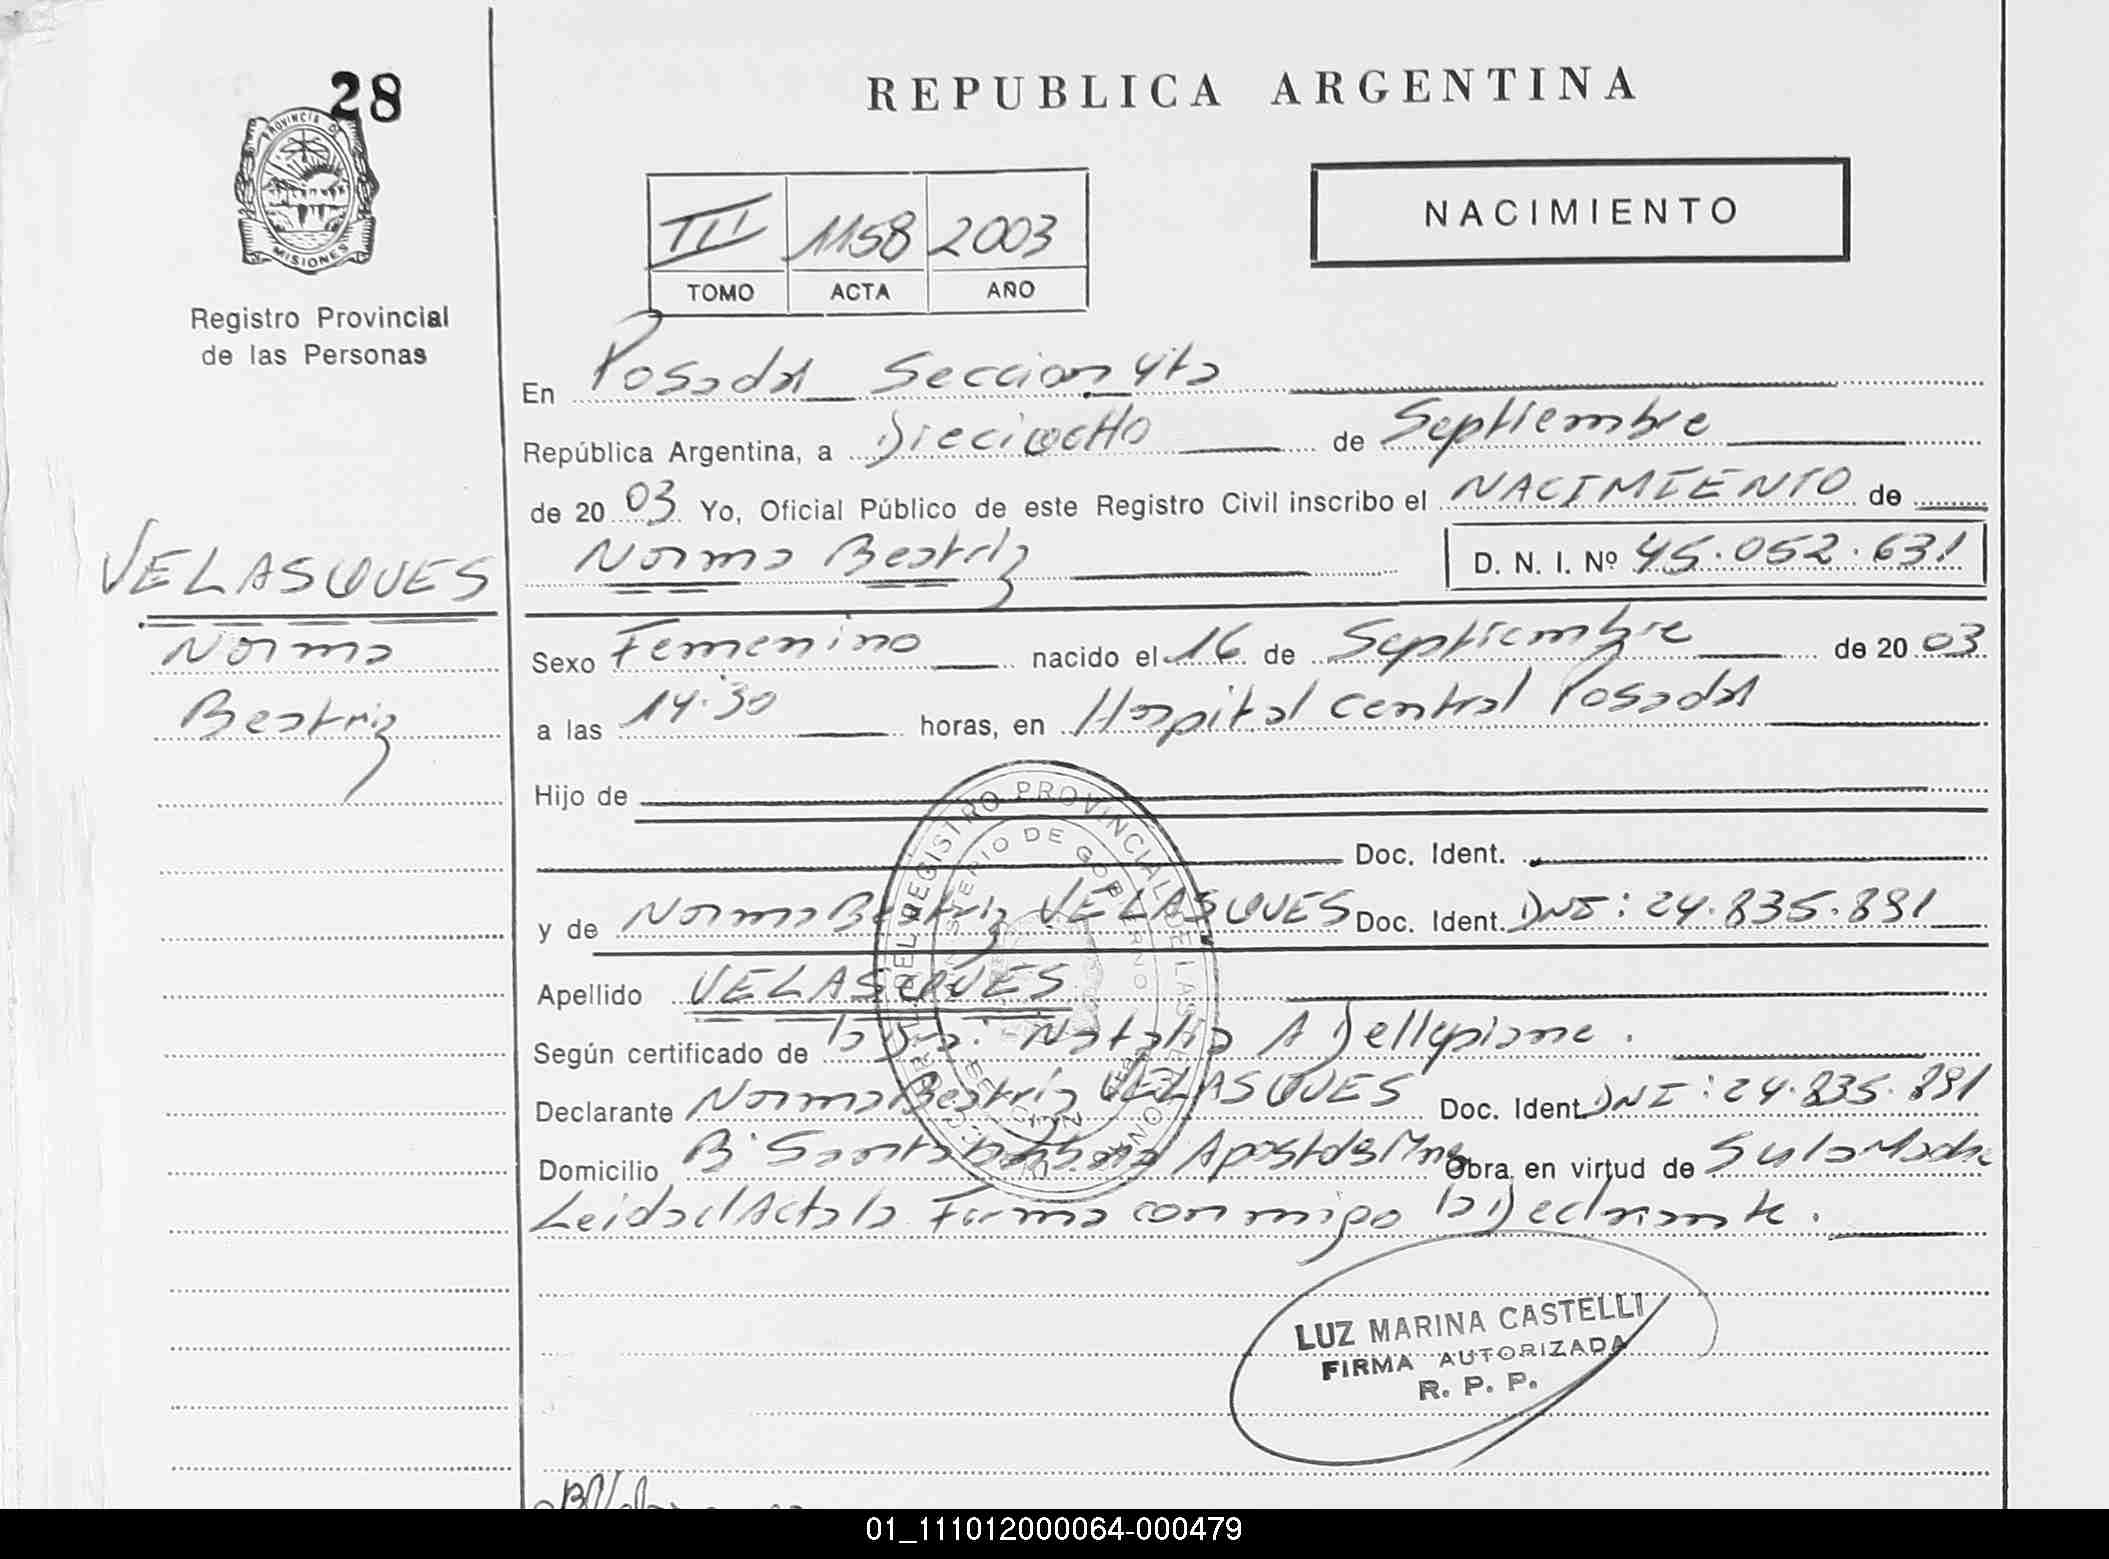 28
REPUBLICA ARGENTINA
PROVINCIA DE
MISIONES
III 1158 2003
TOMO ACTA AÑO
NACIMIENTO
Registro Provincial
de las Personas
En Posadas Seccion 4ta
República Argentina, a Dieciocho de Septiembre
de 20 03 Yo, Oficial Público de este Registro Civil inscribo el NACIMIENTO de
Norma Beatriz D. N. I. Nº 45.052.631
VELASQUES
Norma
Beatriz
Sexo Femenino nacido el 16 de Septiembre de 20 03
a las 14.30 horas, en Hospital Central Posadas
Hijo de
Doc. Ident.
y de Norma Beatriz VELASQUES Doc. Ident. DNI: 24.835.891
Apellido VELASQUES
Según certificado de la Dra. Natalia A Dellepiane.
Declarante Norma Beatriz VELASQUES Doc. Ident. DNI: 24.835.891
Domicilio Bº Santa Barbara Apostoles Mnes Obra en virtud de Ser la Madre
Leida el Acta la Firma conmigo la Declarante.
REGISTRO PROVINCIAL DE LAS
MINISTERIO DE GOBIERNO
LUZ MARINA CASTELLI
FIRMA AUTORIZADA
R. P. P.
01_111012000064-000479